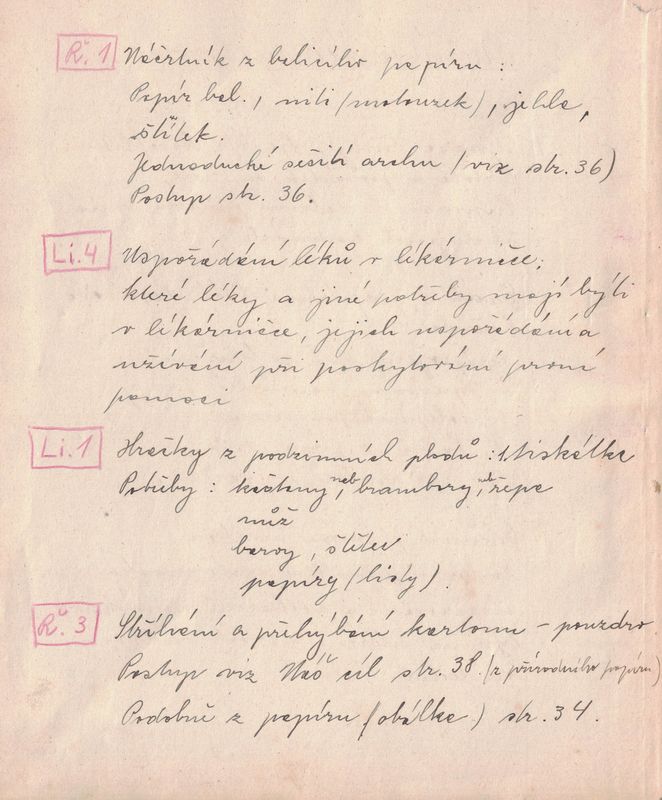 Ř. 1 Náčrtník z balicího papíru :
Papír bal., niti /motouzek), jehla,
štítek.
Jednoduché sešití archu /viz str. 36)
Postup str. 36.
Li. 4 Uspořádání léků v lékárničce;
které léky a jiné potřeby mají býti
v lékárničce, jejich uspořádání a
užívání při poskytování první
pomoci
Li. 1 Hračky z podzimních plodů : 1. tiskátka
Potřeby : kaštany neb, brambory, neb řepa
nůž
barvy, štětec
papíry /listy).
Ř. 3 Stříhání a přehýbání kartonu – pouzdro
Postup viz Náš cíl str. 38. /z přírodního papíru)
Podobně z papíru /obálka) str. 34.